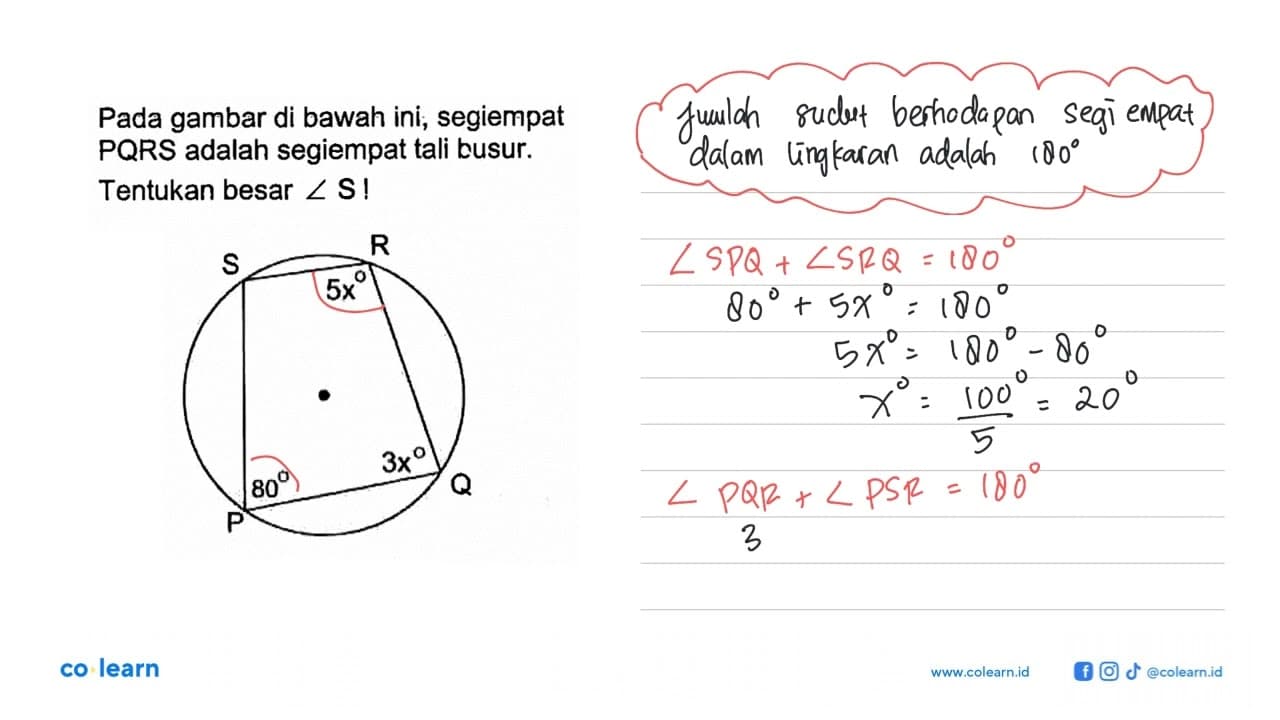 Pada gambar di bawah ini, segiempat
PQRS adalah segiempat tali busur.
Tentukan besar ∠ S!
S
R
5x°
80°
3x°
P
Q
Jumlah sudut berhadapan segi empat
dalam lingkaran adalah 180°
∠SPQ + ∠SRQ = 180°
80° + 5x° = 180°
5x° = 180° - 80°
x° = 100°/5 = 20°
∠ PQR + ∠ PSR = 180°
3
co·learn
www.colearn.id
@colearn.id